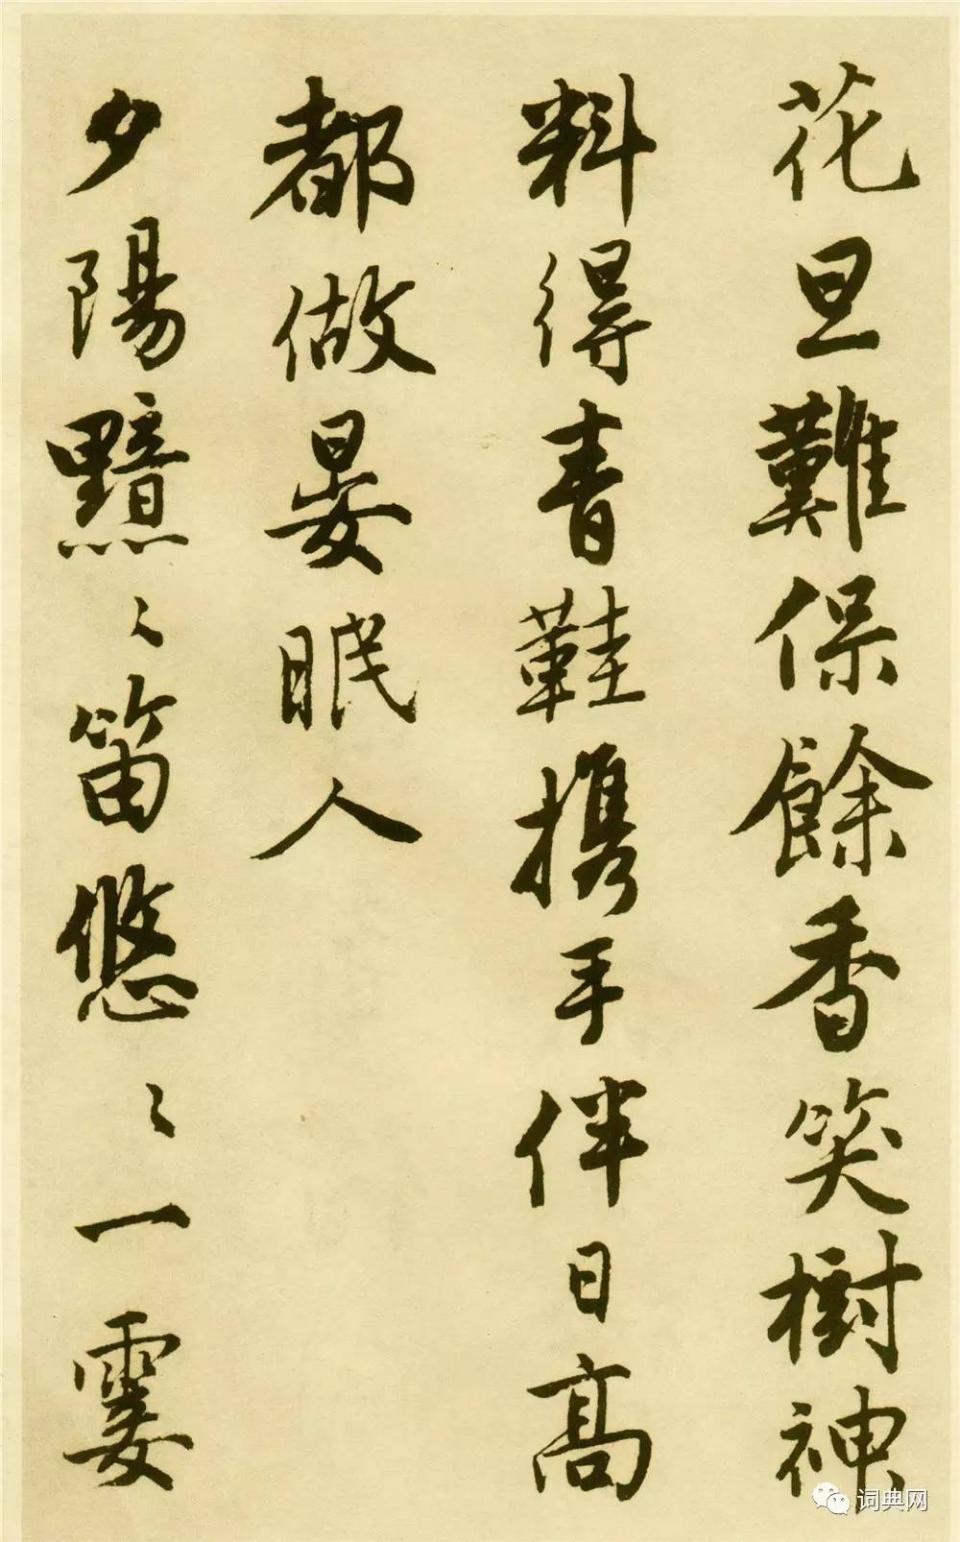 花旦難保餘香笑樹神
料得青鞋携手伴日高
都做晏眠人
夕陽黯〻笛悠〻一霎
词典网